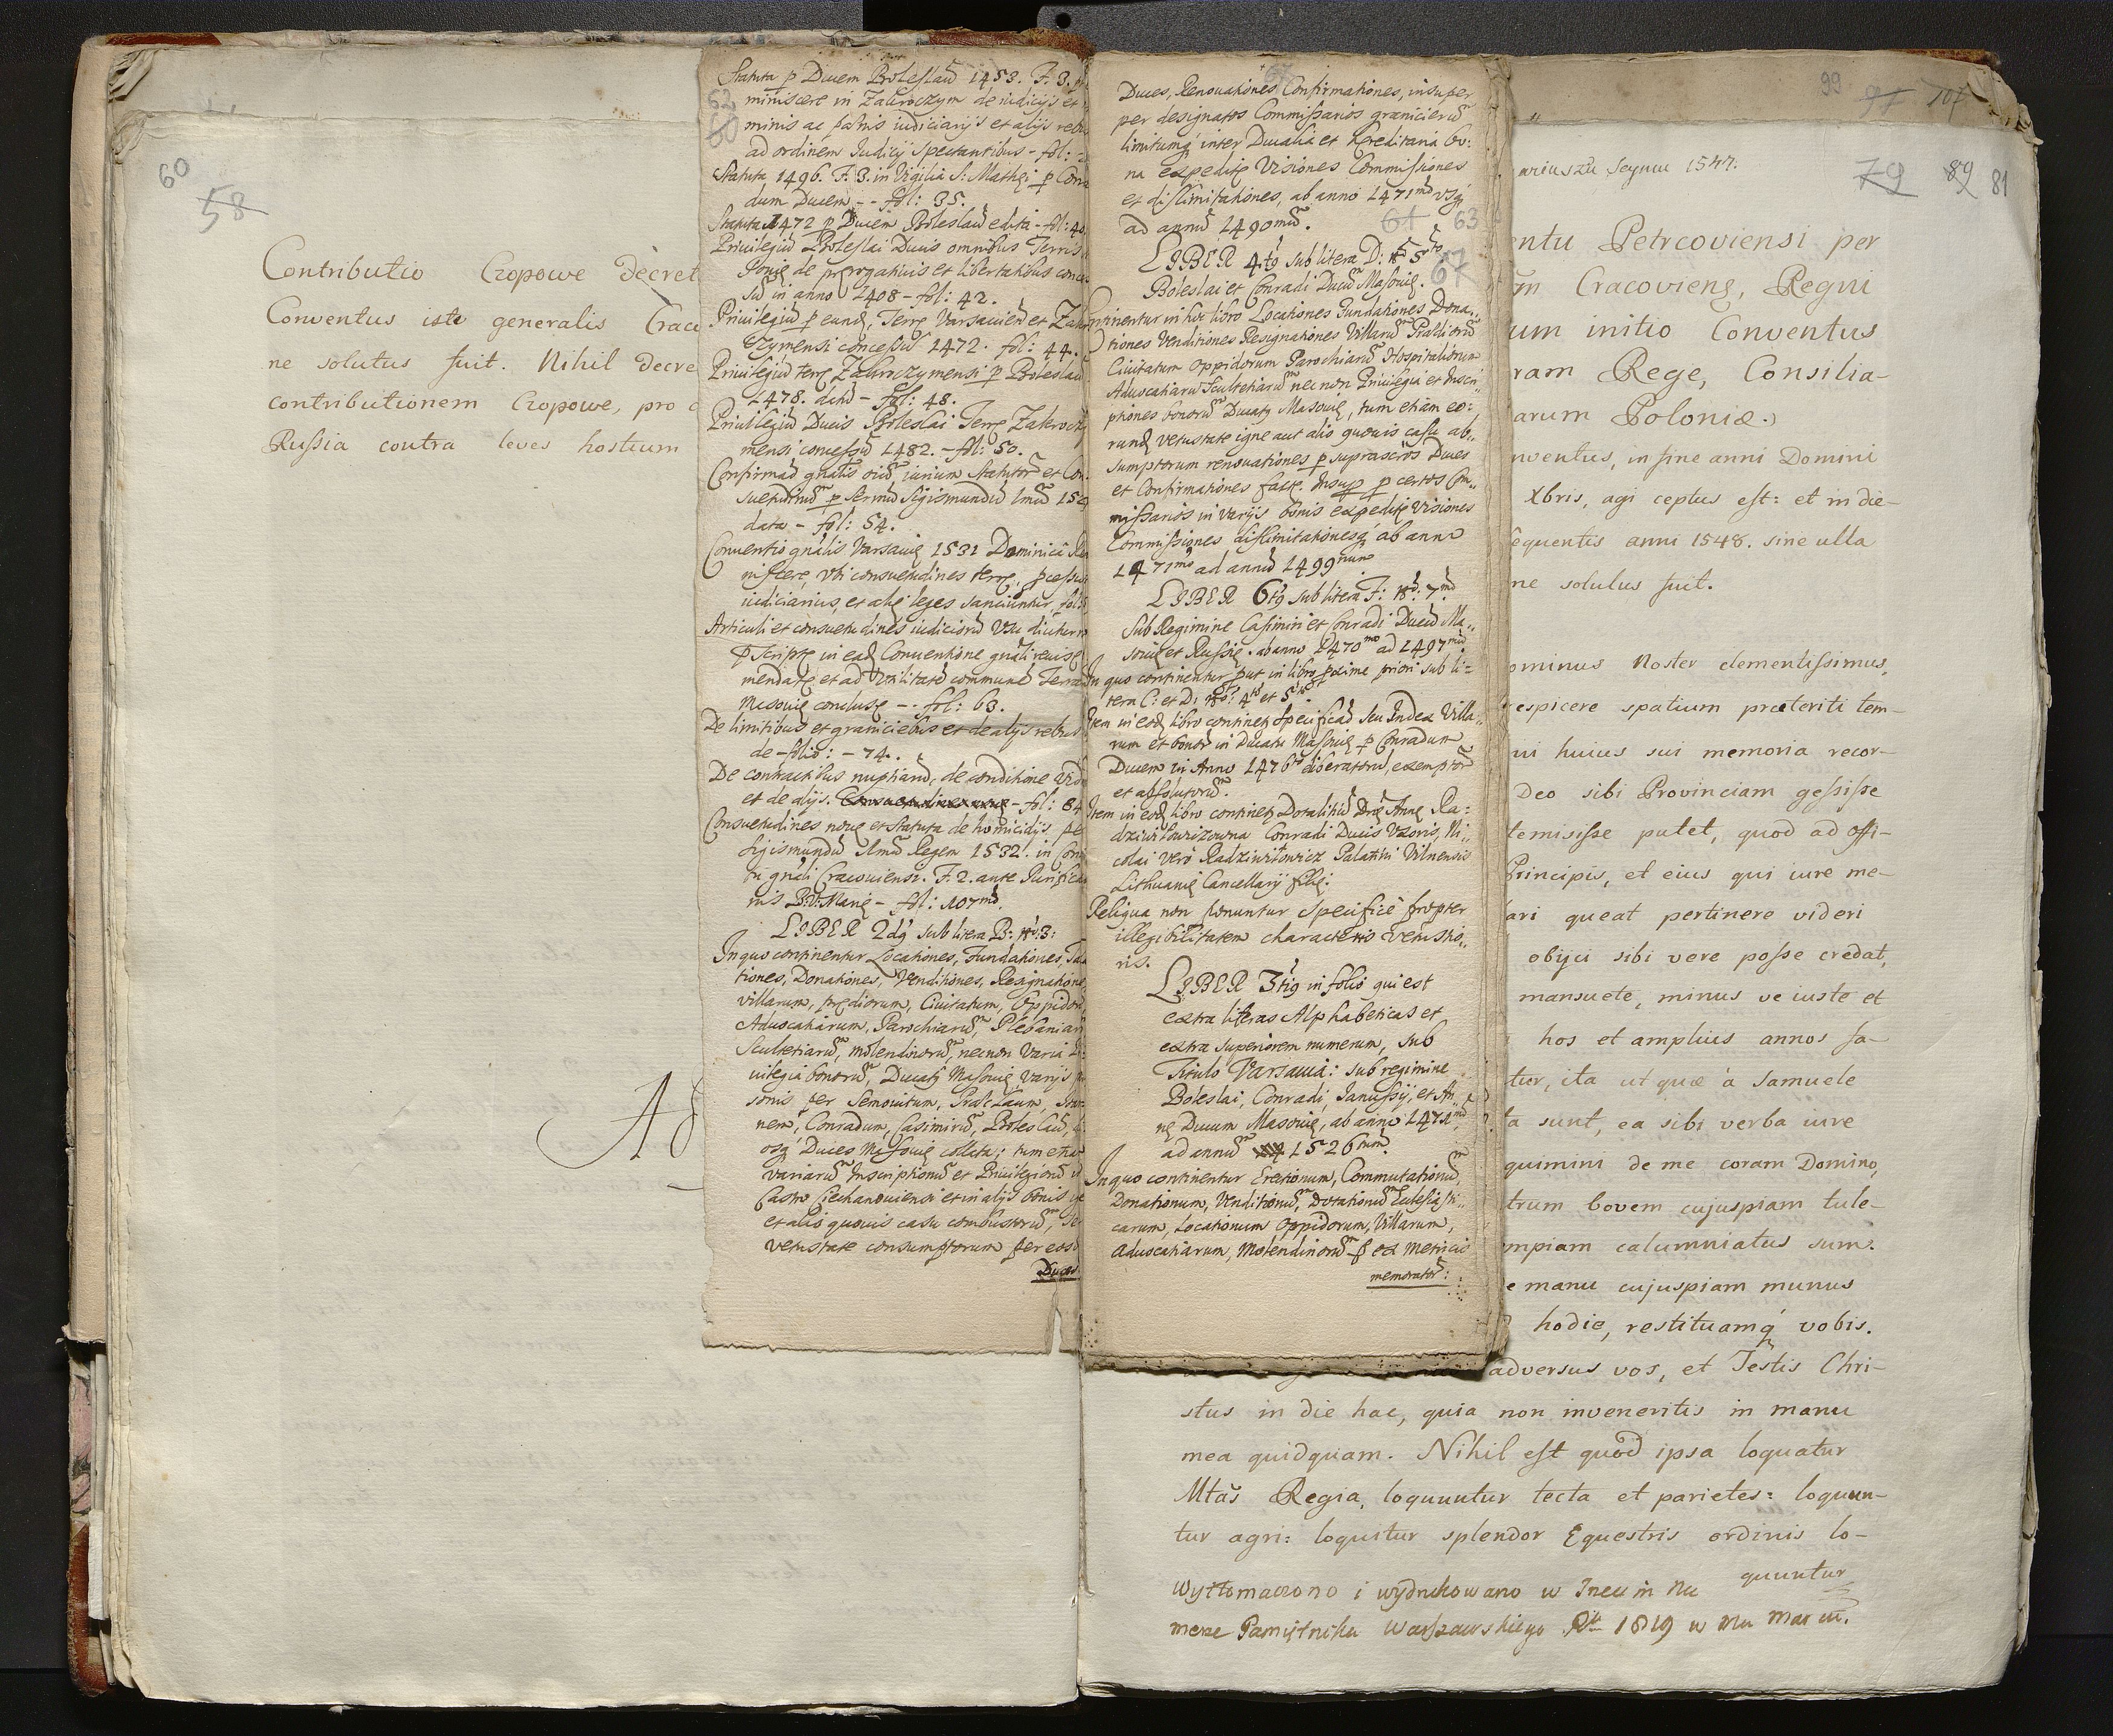 60
58
Contributio Czopowe Decret
Conventus iste generalis Crac
ne solutus fuit. Nihil decre
contributionem Czopowe, pro
Russia contra leves hostium
Statuta p Ducem Boleslaũ 1453. F. 3.
miniscere in Zakroczym de iudicijs et
62
60
minis ac pænis iudiciarijs et alijs rebus
ad ordinem Judicij spectantibus - fol:
Statuta 1496. F. 3. in Vigilia S: Mathęi p Conra
dum Ducem - - fol: 35.
Statuta 1472 p Ducem Boleslaũ edita - fol: 40
Priuilegiũ Boleslai Ducis omnibus Terris
souię de prærogatiuis et libertatibus conces
sũ in anno 1408 - fol: 42.
Priuilegiũ p eund, Terrę Varsauien et Zakro
czymensi concessũ 1472. fol: 44.
Priuilegiũ terrę Zakroczymensi p Boleslaũ
1478. datũ - fol: 48.
Priuilegiũ Ducis Boleslai Terrę Zakroczy
mensi concessũ 1482. - fol: 50.
Confirmaõ gnalis oiũ iurium Statutor et Con
suetudinũ p Sermũ Sigismundũ Imũ 152
data - fol: 54.
Conuentio gnâlis Varsauię 1531 Dominicâ Re
miscere, vbi consuetudines terrę, pcessus
iudiciarius, et alię leges sanciuntur, fol:
Articuli et consuetudines iudiciorũ Vsu diuturno
pscriptę in ead Conuentione gnâli reuisę
mendatę et ad Vtilitatẽ communẽ Terrar
Masouię conclusę - - fol: 63.
De limitibus et graniciebus et de alijs rebus
de - folio: - 74.
De contractibus nuptiarũ, de conditione vid
et de alijs. - fol: 84
Consuetudines nouę et Statuta de homicidijs pe
Sigismundũ Imũ Regem 1532. in Con
tu gnâli Cracouiensi. F. 2. ante Purificat
nis B: V: Marię - fol: 107md
LIBER 2dg sub litera B: nrõ: 3:
In quo continentur Locationes, Fundationes,
tiones, Donationes, Venditiones, Resignationes
villarum, prędiorum, Ciuitatum, Oppidorũ
Aduocatiarum, Parochiarũ, Plebaniarũ
Scultetiarũ, molendinorũ, necnon Varia Pri
uilegia bonorũ, Ducatg Masouię, Varijs per
sonis per Semouitum, Traslaum, Joan
nem, Conradum, Casimirũ, Boleslaũ,
osq Duces Masouię collata; tum etiam
variarũ Inscriptionũ et Priuilegiorũ
Castro Ciechanouiensi et in alijs bonis
et alio quouis casu combustorũ, seu
vetustate consumptorum per eosd
Duces
Duces, Renouationes Confirmationes, insuper
per designatos Commissarios granicierũ
limitumq inter Ducalia et Hæreditaria bo:
na expeditę Visiones Commissiones
et dislimitationes, ab anno 1471mo vsq
ad annũ 1490mũ.
61 63
LIBER 4tg sub litera D: nrõ 5to
67
Boleslai et Conradi Ducũ Masouię.
Continentur in hoc libro Locationes Fundationes Dona„
tiones Venditiones Resignationes Villarũ Prædiorũ
Ciuitatum Oppidorum Parochiarũ Hospitaliorum
Aduocatiarũ Scultetiarũ necnon Priuilegia et Inscri„
ptiones bonorũ Ducatg Masouię, tum etiam eo:
rund vetustate igne aut alio quouis casu ab„
sumptorum renouationes p suprascros Duces
et Confirmationes factę. Insup p certos Com„
missarios in Varijs bonis expeditę Visiones
Commissiones dislimitationesq ab anno
1471mo ad annũ 1499num
LIBER 6tg sub litera F: nrõ: 7mo
Sub Regimine Casimiri et Conradi Ducũ Ma„
souię et Russię. ab anno 1470mo ad 1497mũ
In quo continentur put in libro pxime priori sub li=
tera C: et D: nrõ: 4to et 5to
Item in eod libro continetr Specificaõ seu Index Villa„
rum et bonor in Ducatu Masouię p Conradum
Ducem in Anno 1476to liberatorũ, exemptor
et absolutorũ.
Item in eod libro continetr Dotalitiũ Dnę Annę Ra:
dziwiłowizowna Conradi Ducis Vxoris, Ni„
colai verò Radziwiłowicz Palatini Vilnensis
Lithuanię Cancellarij filię:
Reliqua non ponuntur specificè propter
illegibilitatem characteris vetustio„
ris.
LIBER 3tig in folio qui est
extra literas Alphabeticas et
extra superiorem numerum, sub
Titulo Varsauia: sub regimine
Boleslai, Conradi, Janussij, et An„
nę Ducum Masouię, ab anno 1471mo
ad annũ 1526tum
In quo continentur Erectionum, Commutationũ,
Donationum, Venditionũ, Dotationũ Ecclesiasti„
carum, Locationum Oppidorum, Villarum,
Aduocatiarum, Molendinorũ p ex metricis
memorator:
99 97 107
ariuszu Seymu 1547.
79 89 81
entu Petrcoviensi per
m Cracovieng, Regni
um initio Conventus
ram Rege, Consilia-
arum Poloniæ.
nventus, in fine anni Domini
Xbris, agi ceptus est: et in die-
equentis anni 1548. sine ulla
ne solutus fuit.
ominus Noster clementissimus,
respicere spatium præteriti tem-
ui huius sui memoria recor-
Deo sibi Provinciam gessisse
temisisse putet, quod ad offi-
Principis, et eius qui iure me-
ari queat pertinere videri
obijci sibi vere posse credat,
mansuete, minus ve iuste et
hos et amplius annos fa-
tur, ita ut quæ à Samuele
ta sunt, ea sibi verba iure
quimini de me coram Domino,
trum bovem cujuspiam tule-
mpiam calumniatus sum.
e manu cujuspiam munus
hodie, restituamq vobis.
adversus vos, et Testis Chri-
stus in die hac, quia non inveneritis in manu
mea quidquam. Nihil est quod ipsa loquatur
Mtas Regia, loquuntur tecta et parietes: loquun-
tur agri: loquitur splendor Equestris ordinis lo-
quuntur
Wytłomaczono i wydrukowano w Trzecim Nu
merze Pamiętnika Warszawskiego Rku 1819 w Mcu Marcu.